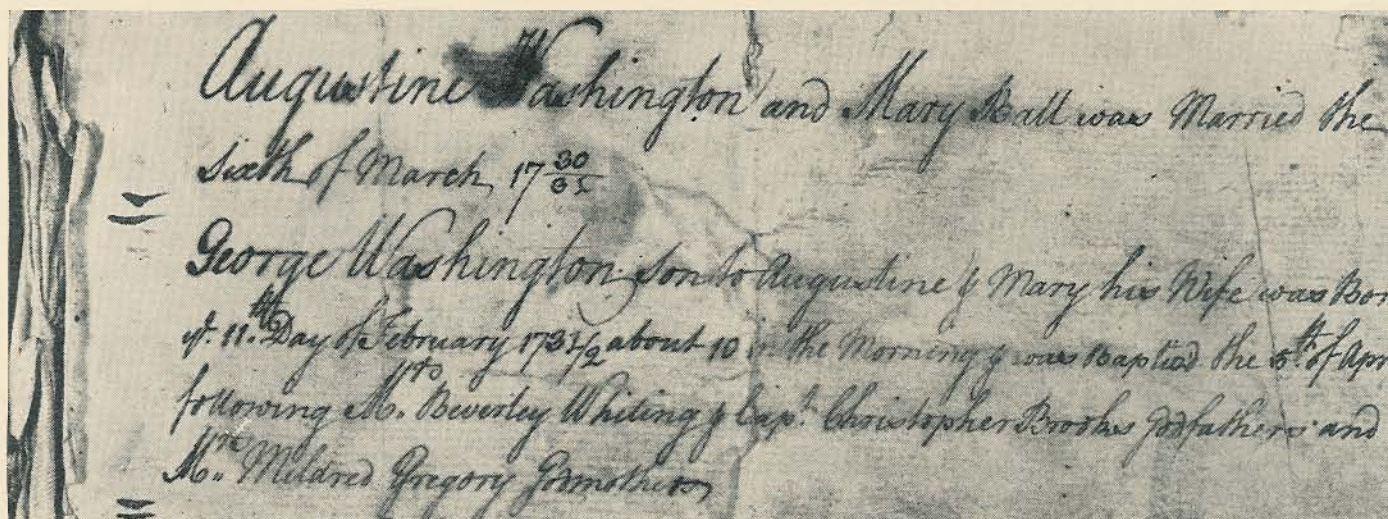 Augustine Washington and Mary Ball was Married the
Sixth of March 17 30/31
George Washington Son to Augustine & Mary his Wife was Bor
yᵉ 11ᵗʰ Day of February 173 1/2 about 10 in the Morning & was Baptised the 5ᵗʰ of Apr
following Mʳ Beverley Whiting & Capᵗ Christopher Brooks godfathers and
Mʳˢ Mildred Gregory Godmother